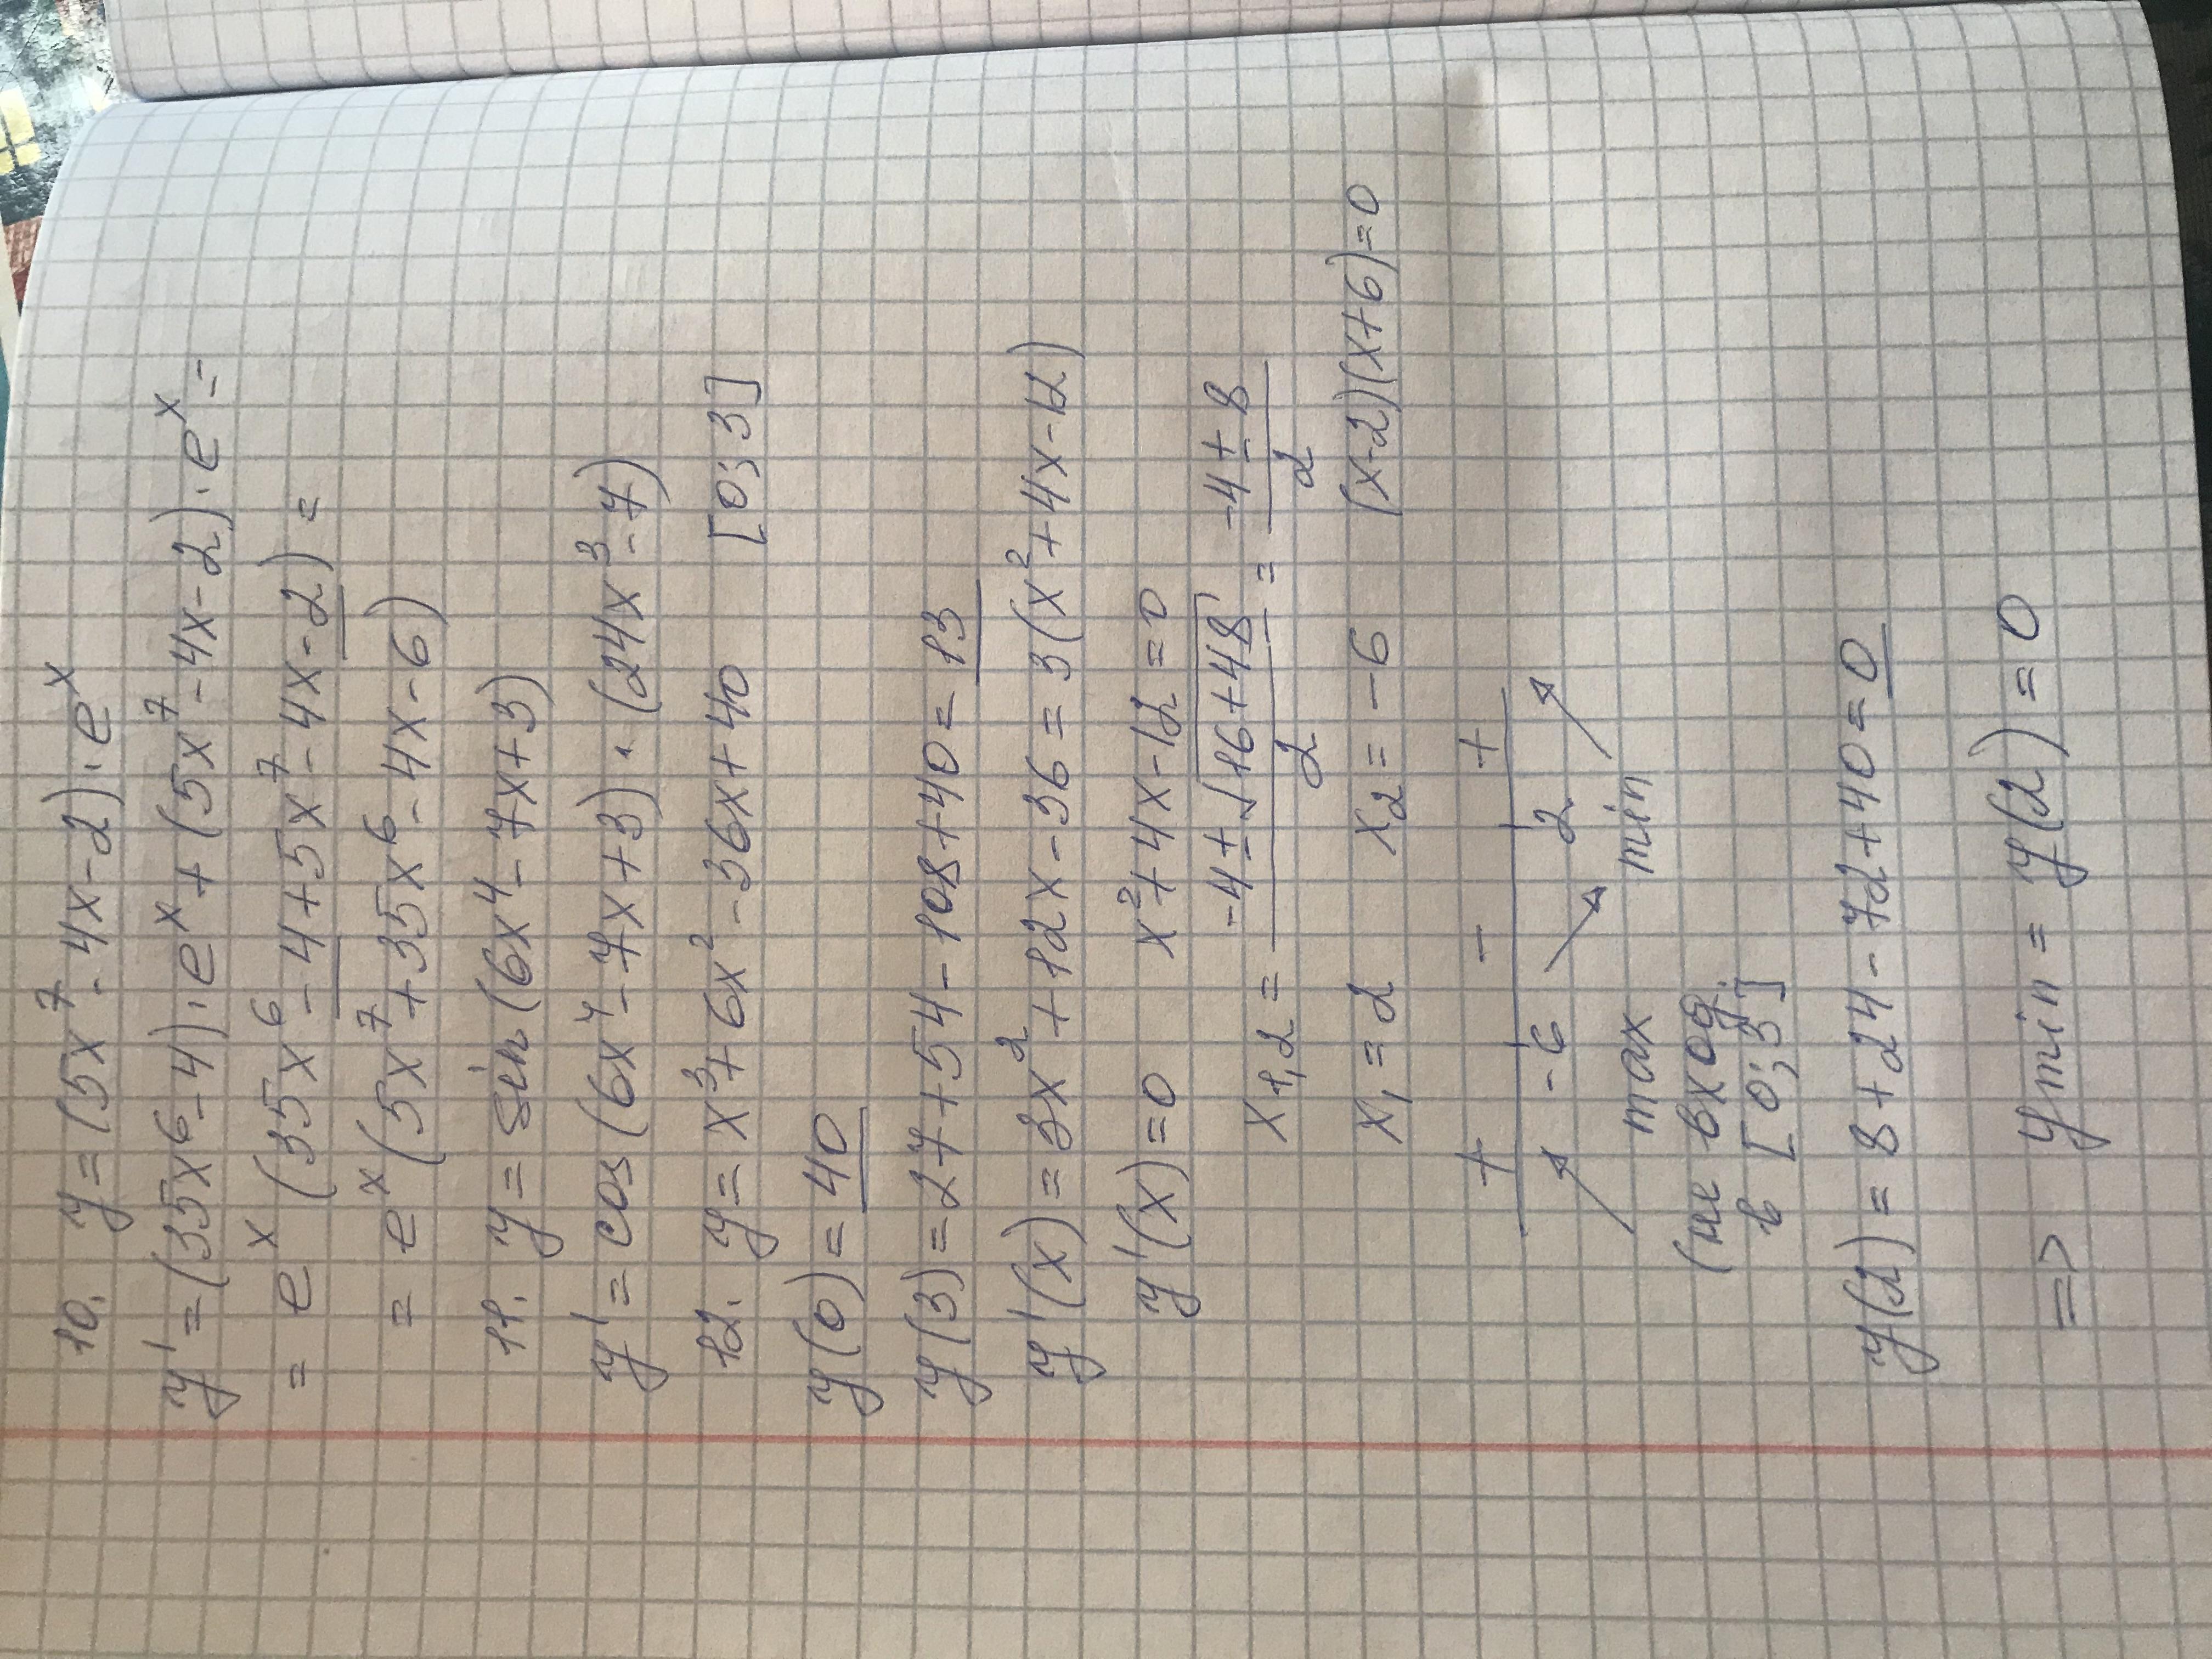 10. y = (5x⁷ - 4x - 2) · eˣ
y' = (35x⁶ - 4) · eˣ + (5x⁷ - 4x - 2) · eˣ =
= eˣ (35x⁶ - 4 + 5x⁷ - 4x - 2) =
= eˣ (5x⁷ + 35x⁶ - 4x - 6)
11. y = sin (6x⁴ - 7x + 3)
y' = cos (6x⁴ - 7x + 3) · (24x³ - 7)
12. y = x³ + 6x² - 36x + 40 [0; 3]
y(0) = 40
y(3) = 27 + 54 - 108 + 40 = 13
y'(x) = 3x² + 12x - 36 = 3(x² + 4x - 12)
y'(x) = 0 x² + 4x - 12 = 0
x₁,₂ = (-4 ± √(16 + 48))/2 = (-4 ± 8)/2
x₁ = 2 x₂ = -6 (x-2)(x+6) = 0
+ - +
-6 2
max min
(не вход.
в [0; 3]
y(2) = 8 + 24 - 72 + 40 = 0
=> y min = y(2) = 0